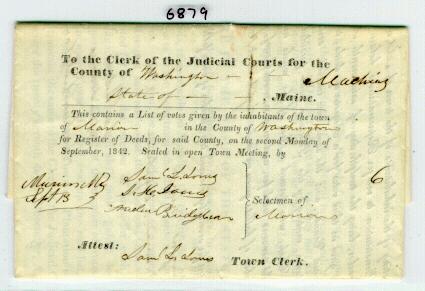 6879
To the Clerk of the Judicial Courts for the
County of Washington Machias
State of , Maine.
This contains a List of votes given by the inhabitants of the town
of Marion in the County of Washington
for Register of Deeds, for said County, on the second Monday of
September, 1842. Sealed in open Town Meeting, by
6
Sept 13
Selectmen of
Marion
Attest:
Town Clerk.